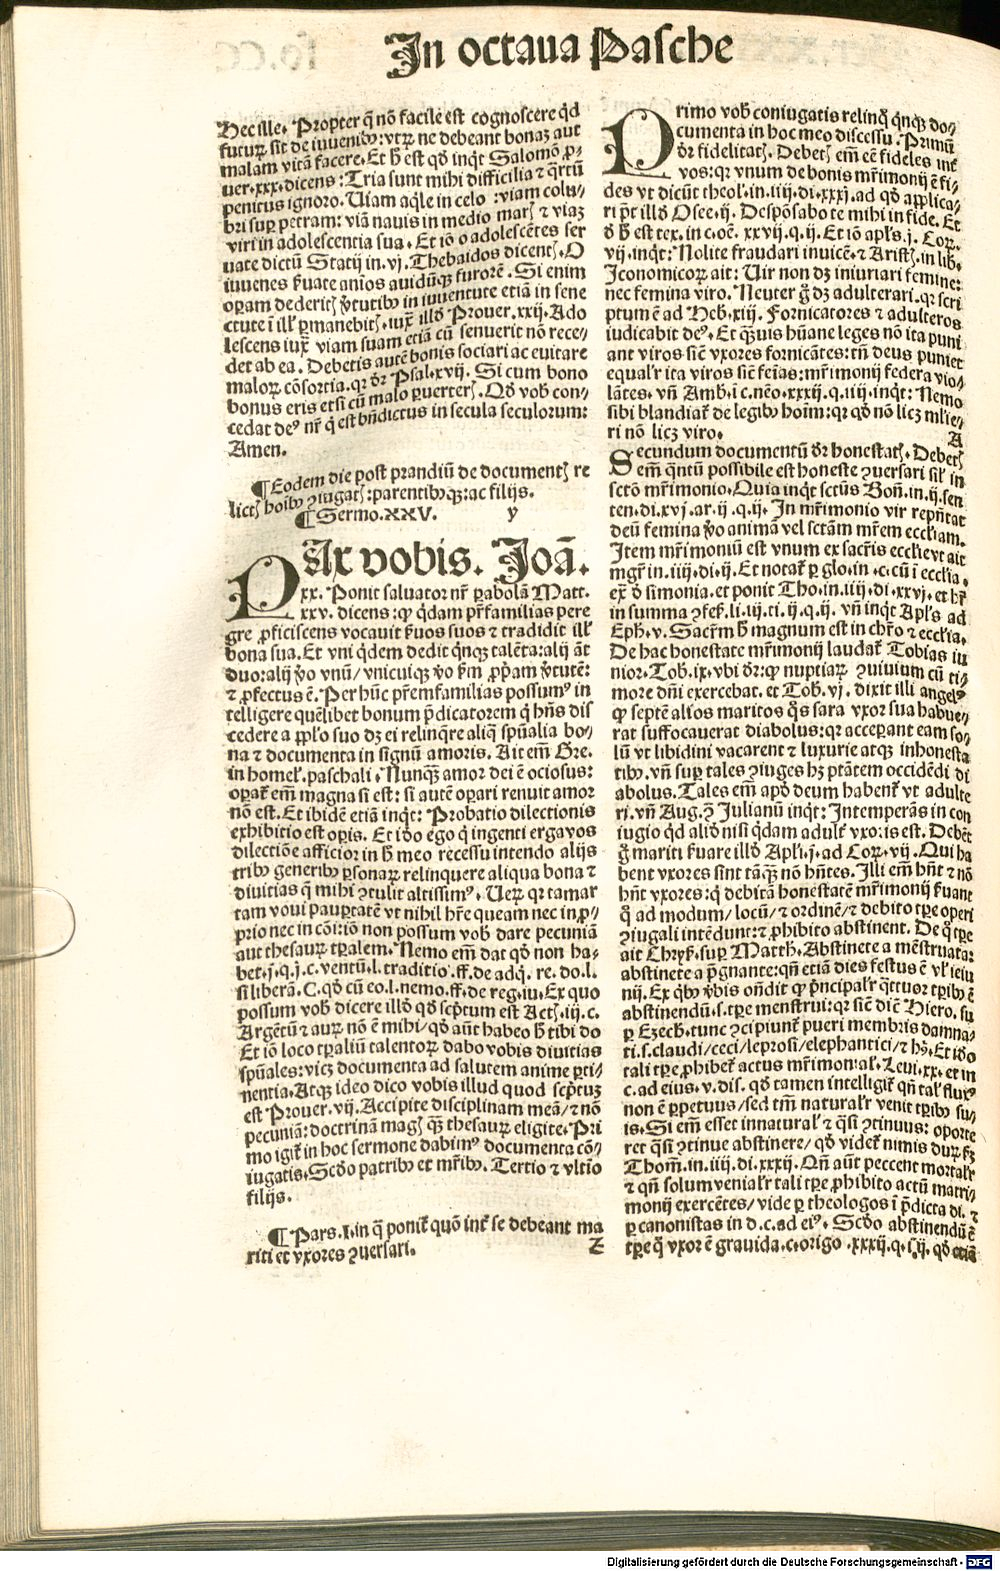 In octaua Pasche
Hec ille. Propter q̄ nō facile est cognoscere qd̄
futurꝝ sit de iuuenibꝰ: vtꝝ ne debeant bonaꝫ aut
malam vitā facere. Et h̄ est qd̄ inqͥt Salomō ꝓ-
uer. xxx. dicens: Tria sunt mihi difficilia ⁊ qͣrtū
penitus ignoro. Uiam aqͥle in celo: viam colu-
bri suꝑ petram: viā nauis in medio marꝭ ⁊ viaꝫ
viri in adolescentia sua. Et iō o adolescētes ser
uate dictū Statij in. vj. Thebaidos dicentꝭ. O
iuuenes ẜuate anīos auidūqꝫ furorē. Si enim
oꝑam dederitꝭ v̓tutibꝰ in iuuentute etiā in sene
ctute ī illꝭ ꝑmanebitꝭ. iuxͣ illd̓ Prouer. xxij. Ado
lescens iuxͣ viam suam etiā cū senuerit nō rece-
det ab ea. Debetis autē bonis sociari ac euitare
maloꝝ cōsortia. qꝛ dr̄ Psal. xvij. Si cum bono
bonus eris etsi cū malo ꝑuerterꝭ. Qd̓ vob̓ con-
cedat deꝰ nr̄ qͥ est bn̄dictus in secula seculorum:
Amen.
¶ Eodem die post prandiū de documentꝭ re
lictꝭ hoībꝰ ꝯiugatꝭ: parentibꝰqꝫ: ac filijs.
¶ Sermo. XXV. y
PAx vobis. Joā.
xx. Ponit saluator nr̄ ꝑabolā Matt.
xxv. dicens: ꝙ qͥdam pr̄familias pere
gre ꝓficiscens vocauit ẜuos suos ⁊ tradidit illꝭ
bona sua. Et vni qͥdem dedit qͥnqꝫ talēta: alij āt
duo: alij v̓o vnū/ vnicuiqꝫ v̓o ẜm ꝓpͥam v̓tutē:
⁊ ꝓfectus ē. Per hūc pr̄emfamilias possumꝰ in
telligere quēlibet bonum p̄dicatorem qͥ hn̄s dis
cedere a ꝓplo suo dꝫ ei relinqͥre aliqͣ spūalia bo-
na ⁊ documenta in signū amoris. Ait em̄ Gre.
in homel. paschali. Nunqͣꝫ amor dei ē ociosus:
oꝑat em̄ magna si est: si autē oꝑari renuit amor
nō est. Et ibidē etiā inqͥt: Probatio dilectionis
exhibitio est oꝑis. Et iō ego qͥ ingenti erga vos
dilectiōe afficior in h̄ meo recessu intendo alijs
tribꝰ generibꝰ ꝑsonaꝝ relinquere aliqua bona ⁊
diuitias qͣs mihi ꝯtulit altissimꝰ. Ueꝝ qꝛ tamar
tam voui pauꝑtatē vt nihil hr̄e queam nec in ꝓ-
prio nec in cōi: iō non possum vob̓ dare pecuniā
aut thesauꝝ tꝑalem. Nemo em̄ dat qd̓ non ha-
bet. j. q. j. c. ventū. l. traditio. ff. de adq. re. do. l.
si liberā. C. qd̓ cū eo. l. nemo. ff. de reg. iu. Ex quo
possum vob̓ dicere illd̓ qd̓ scp̄tum est Actꝭ. iij. c.
Argētū ⁊ auꝝ nō ē mihi/ qd̓ aūt habeo h̄ tibi do
Et iō loco tꝑaliū talentoꝝ dabo vobis diuitias
spūales: vicꝫ documenta ad salutem anime ꝑti-
nentia. Atqꝫ ideo dico vobis illud quod scp̄tuꝫ
est Prouer. vij. Accipite disciplinam meā/ ⁊ nō
pecuniā: doctrinā magꝭ qͣꝫ thesauꝝ eligite. Pri
mo igit̄ in hoc sermone dabimꝰ documenta cō-
iugatis. Scd̓o patribꝰ et mr̄ibꝰ. Tertio ⁊ vltīo
filijs.
¶ Pars. I. in qͣ ponit̄ quō int̄ se debeant ma
riti et vxores ꝯuersari. Z
PRimo vob̓ coniugatis relinqͦ qͥnqꝫ do-
cumenta in hoc meo discessu. Primū
dr̄ fidelitatꝭ. Debetꝭ em̄ eē fideles int̄
vos: qꝛ vnum de bonis mr̄imonij ē fi-
des vt dicūt theol. in. iiij. di. xxxj. ad qd̓ applica-
ri pt̄ illd̓ Osee. ij. Despōsabo te mihi in fide. Et
d̓ h̄ est tex. in c. oē. xxvij. q. ij. Et iō apl̓s. j. Coꝝ.
vij. inqͥt: Nolite fraudari inuicē. ⁊ Aristꝭ. in lib.
Iconomicoꝝ ait: Uir non dꝫ iniuriari femine:
nec femina viro. Neuter g̊ dꝫ adulterari. qꝛ scri
ptum ē ad Heb. xiij. Fornicatores ⁊ adulteros
iudicabit deꝰ. Et qͣuis hūane leges nō ita puni
ant viros sic̄ vxores fornicātes: tn̄ deus puniet
equalr̄ ita viros sic̄ fēīas: mr̄imonij federa vio-
lātes. vn̄ Amb. ī c. nēo. xxxij. q. iiij. inqͥt: Nemo
sibi blandiat̄ de legibꝰ hoīm: qꝛ qd̓ nō licꝫ mlie-
ri nō licꝫ viro. A
Secundum documentū dr̄ honestatꝭ. Debetꝭ
em̄ qͣntū possibile est honeste ꝯuersari sil̓ in
sctō mr̄imonio. Quia inqͥt sctūs Bon̄. in. ij. sen
ten. di. xvj. ar. ij. q. ij. In mr̄imonio vir rep̄ntat
deū femina v̓o animā vel sctām mr̄em eccl̓iam.
Item mr̄imoniū est vnum ex sacr̄is eccl̓ie vt ait
mgr̄ in. iiij. di. ij. Et notat̄ ꝑ glo. in. c. cū ī eccl̓ia.
ex̄ d̓ simonia. et ponit Tho. in. iiij. di. xxvj. et hr̄
in summa ꝯfes. li. iij. ti. ij. q. ij. vn̄ inqͥt Apl̓s ad
Eph. v. Sacr̄m h̄ magnum est in chr̄o ⁊ eccl̓ia.
De hac honestate mr̄imonij laudat̄ Tobias iu
nior. Tob. ix. vbi dr̄: ꝙ nuptiaꝝ ꝯuiuium cū ti-
more dn̄i exercebat. et Tob. vj. dixit illi angelꝰ
ꝙ septē alios maritos qͦs sara vxor sua habue-
rat suffocauerat diabolus: qꝛ acceꝑant eam so-
lū vt libidini vacarent ⁊ luxurie atqꝫ inhonesta
tibꝰ. vn̄ suꝑ tales ꝯiuges hꝫ ptātem occidēdi di
abolus. Tales em̄ apd̓ deum habent̄ vt adulte
ri. vn̄ Aug. ꝯ Julianū inqͥt: Intemperās in con
iugio qͥd aliō nisi qͥdam adult̄ vxoris est. Debēt
g̊ mariti ẜuare illd̓ Apl̓i. j. ad Coꝝ. vij. Qui ha
bent vxores sint tāqͣꝫ nō hn̄tes. Illi em̄ hn̄t ⁊ nō
hn̄t vxores: qͥ debitā honestatē mr̄imonij ẜuant
qͦ ad modum/ locū/ ⁊ ordinē/ ⁊ debito tꝑe operi
ꝯiugali intēdunt: ⁊ ꝓhibito abstinent. De qͦ tꝑe
ait Chryſ. suꝑ Matth. Abstinete a mēstruata:
abstinete a p̄gnante: qn̄ etiā dies festus ē vl̓ ieiu
nij. Ex qͥbꝰ v̓bis on̄dit ꝙ pͥncipalr̄ qͣttuor tꝑibꝰ ē
abstinendū. s. tꝑe menstrui: qꝛ sic̄ dic̄ Hiero. su
ꝑ Ezech. tunc ꝯcipiunt̄ pueri membris damna-
ti. s. claudi/ ceci/ leprosi/ elephantici/ ⁊ hꝰ. Et iō
tali tꝑe ꝓhibet̄ actus mr̄imonial̓. Leui. xx. et in
c. ad eius. v. dis. qd̓ tamen intelligit̄ qn̄ tal̓ fluxꝰ
non ē ꝑpetuus/ sed tm̄ naturalr̄ venit tꝑibꝰ su-
is. Si em̄ esset innatural̓ ⁊ qͣsi ꝯtinuus: oporte
ret qͣsi ꝯtinue abstinere/ qd̓ videt̄ nimis duꝝ ẜm
Thom. in. iiij. di. xxxij. Qn̄ aūt peccent mortalr̄
⁊ qn̄ solum venialr̄ tali tꝑe ꝓhibito actū matri-
monij exercētes/ vide ꝑ theologos ī p̄dicta di. ⁊
ꝑ canonistas in d. c. ad eiꝰ. Scd̓o abstinendū ē
tꝑe qͦ vxor ē grauida. c. origo. xxxij. q. ij. qd̓ etiā
Digitalisierung gefördert durch die Deutsche Forschungsgemeinschaft - DFG